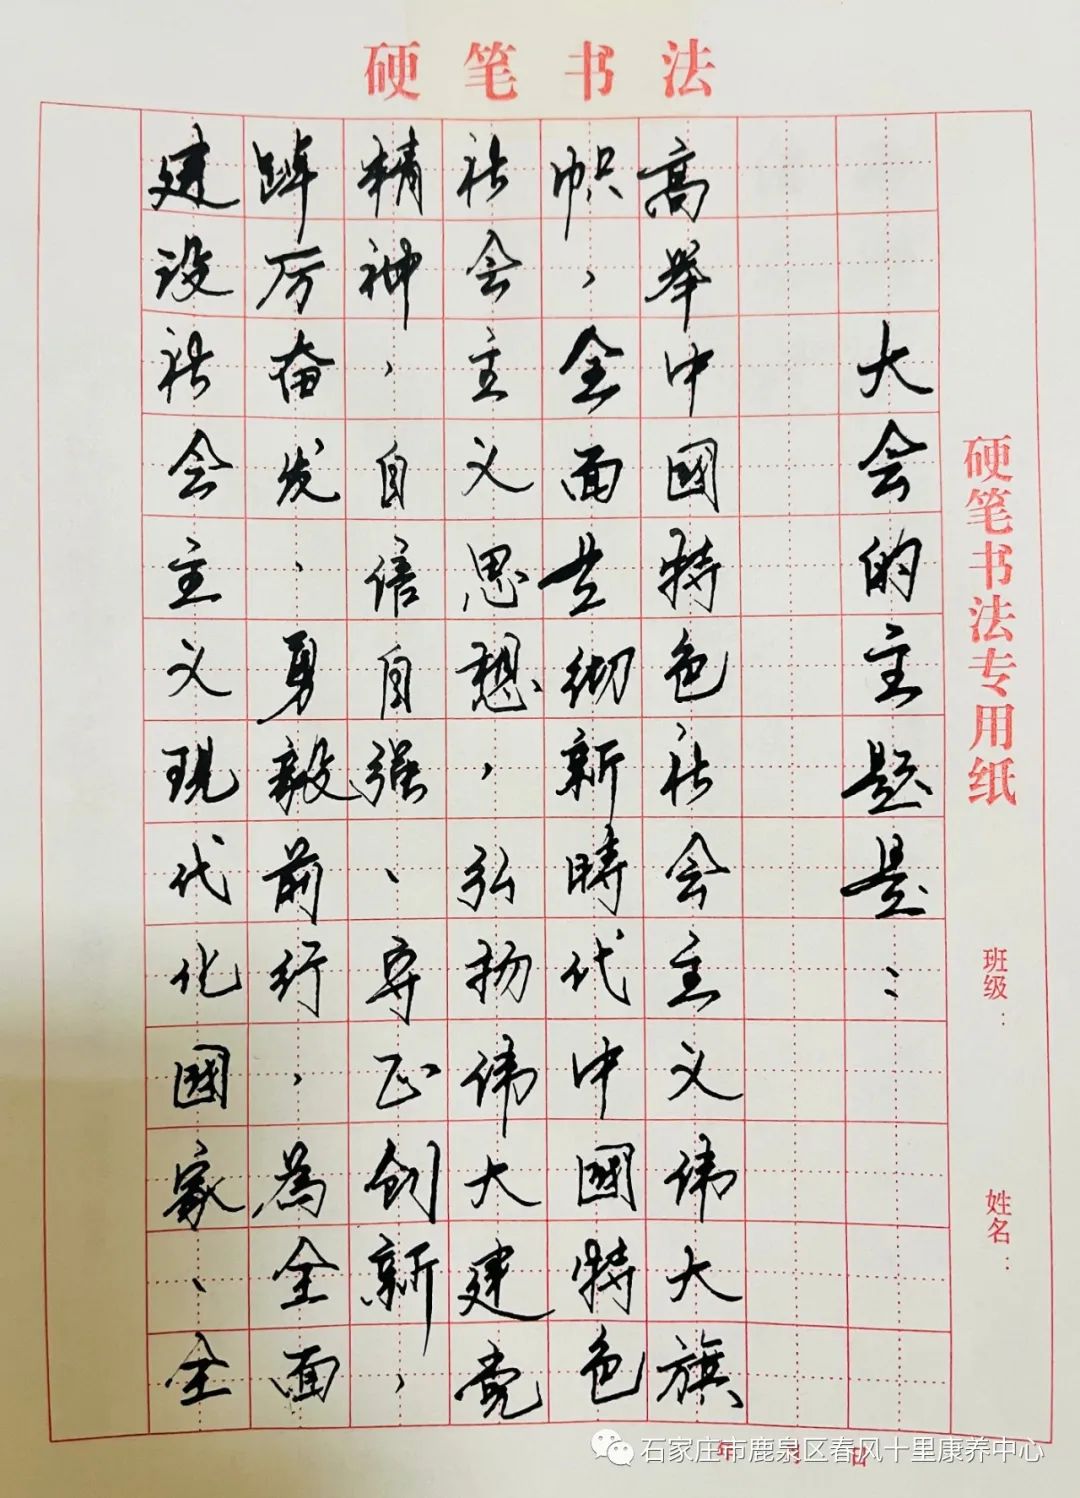 硬笔书法
硬笔书法专用纸
班级：
姓名：
大会的主题是：
高举中國特色社会主义伟大旗
帜，全面贯彻新時代中國特色
社会主义思想，弘扬伟大建党
精神，自信自强、守正创新，
踔厉奋发、勇毅前行，為全面
建设社会主义现代化國家、全
年 月 日
石家庄市鹿泉区春风十里康养中心